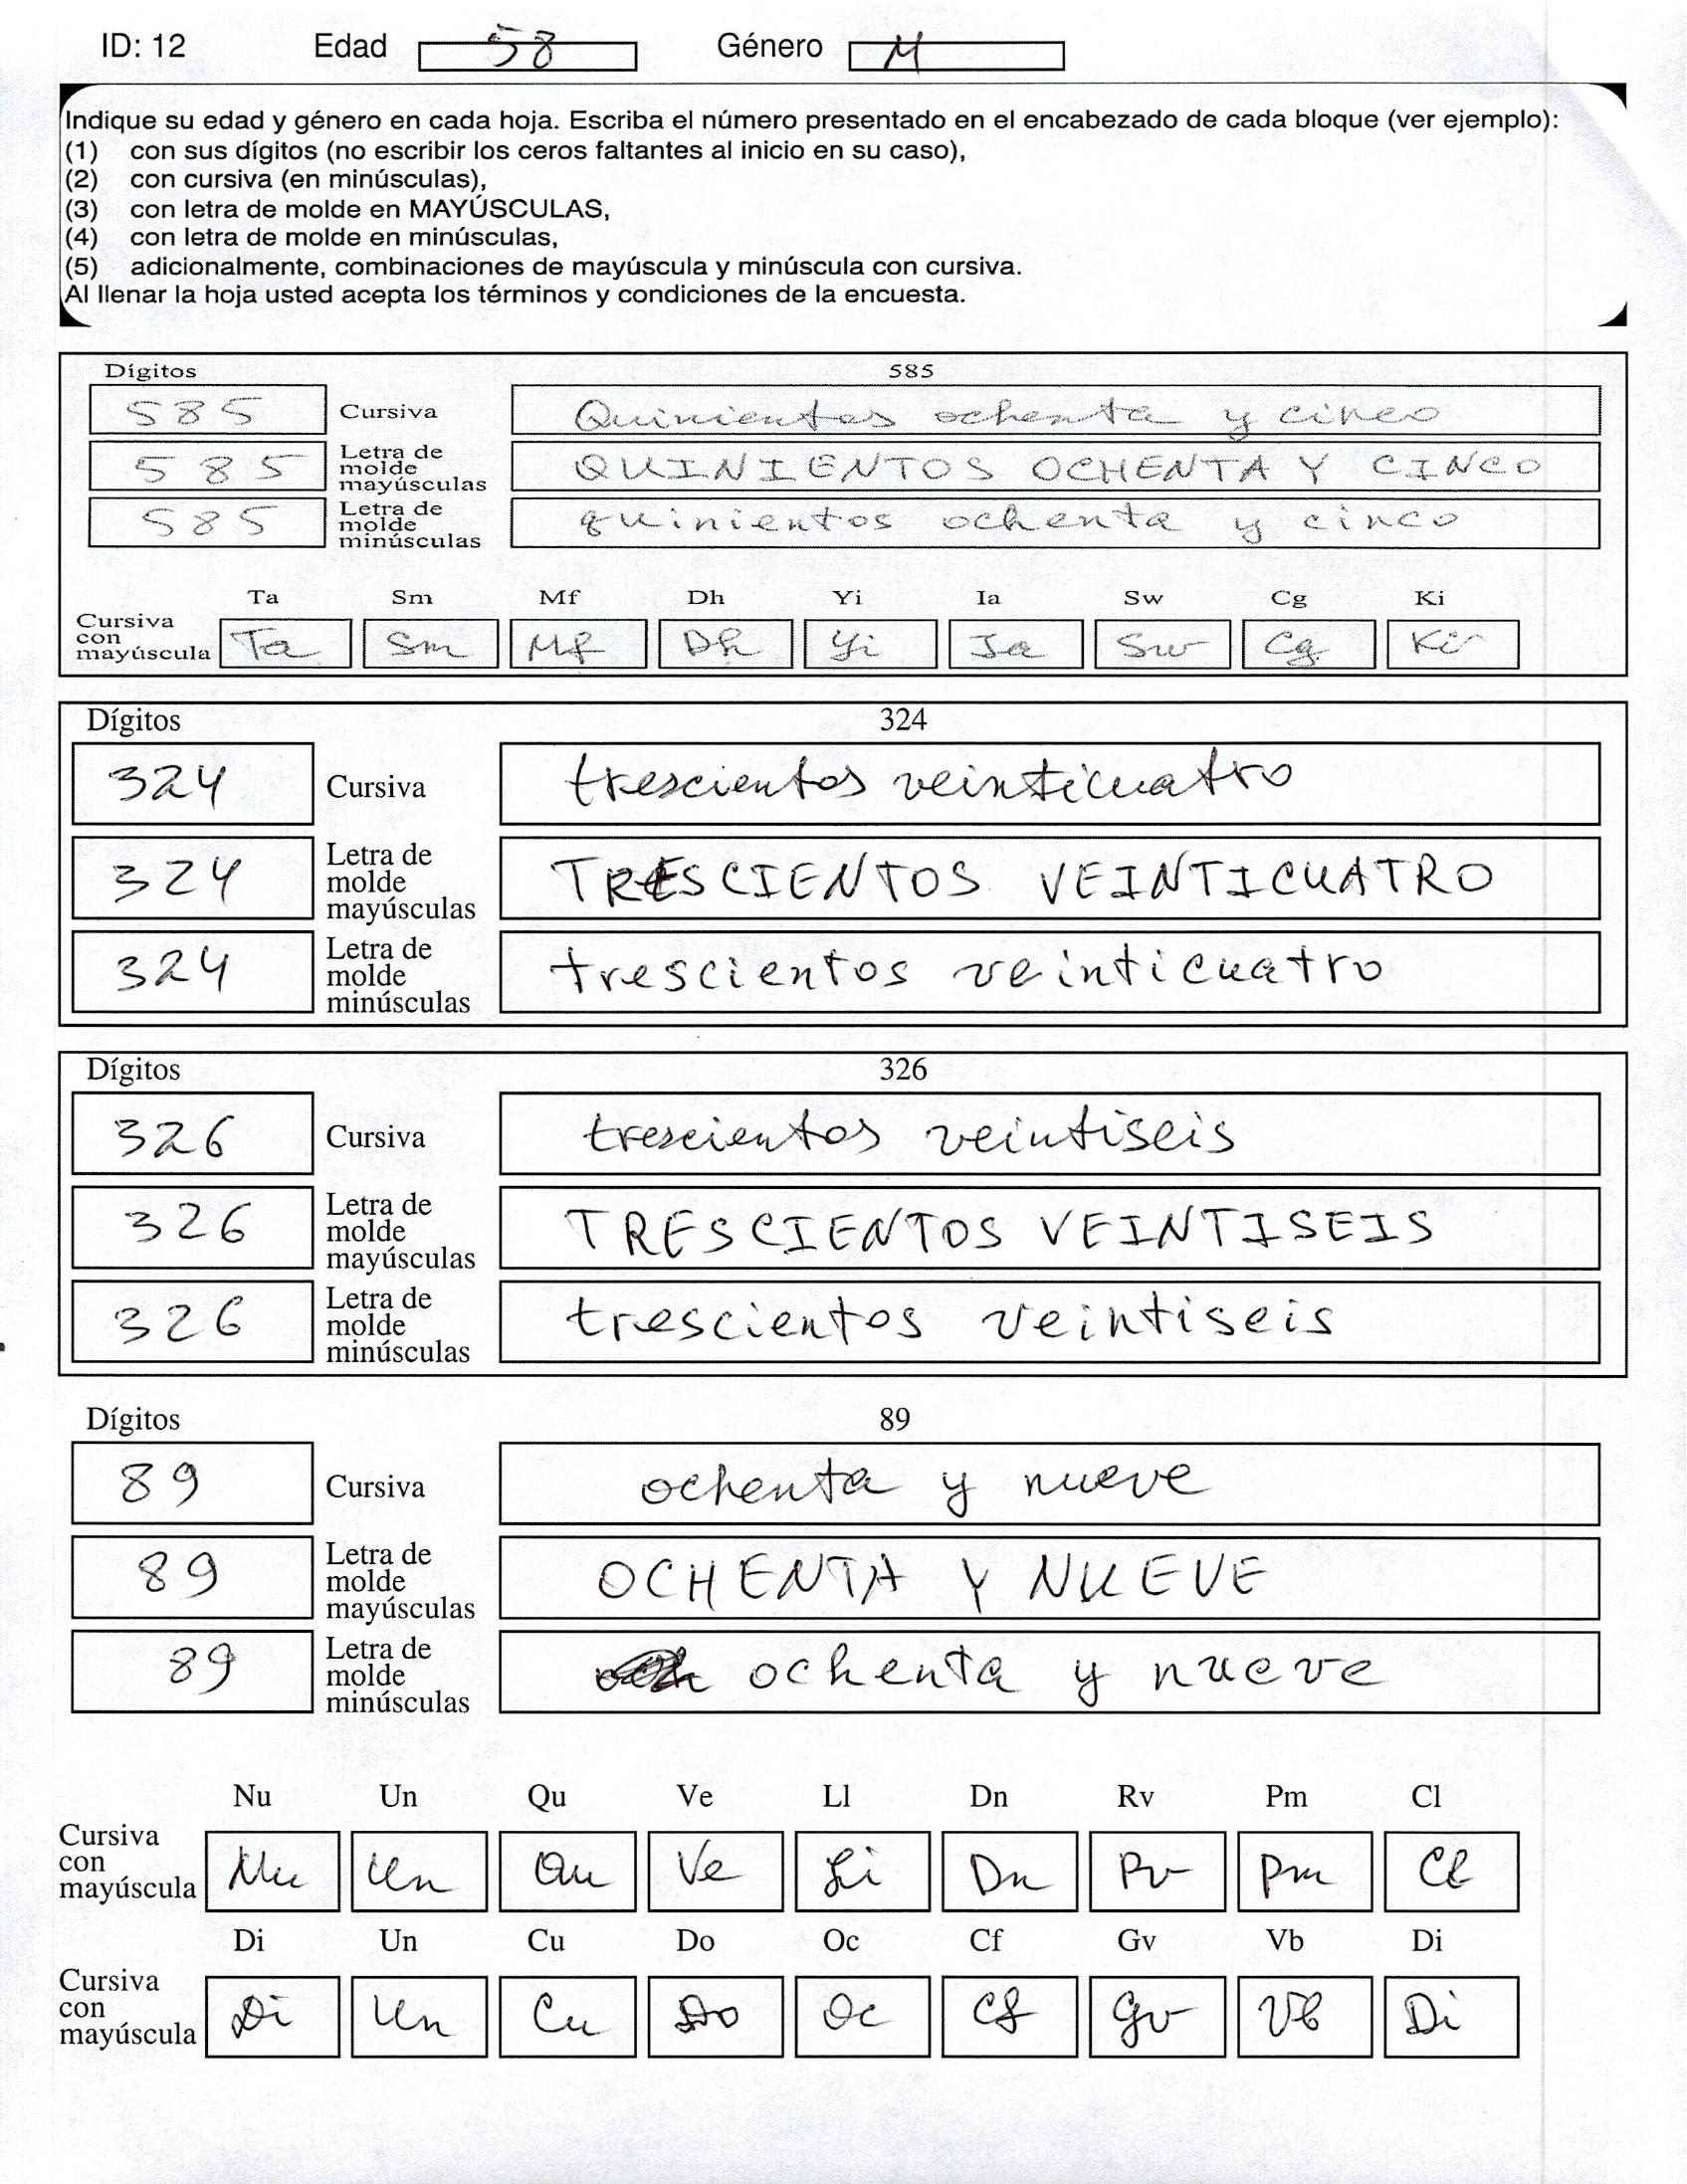 ID: 12 Edad 58 Género M
Indique su edad y género en cada hoja. Escriba el número presentado en el encabezado de cada bloque (ver ejemplo):
(1) con sus dígitos (no escribir los ceros faltantes al inicio en su caso),
(2) con cursiva (en minúsculas),
(3) con letra de molde en MAYÚSCULAS,
(4) con letra de molde en minúsculas,
(5) adicionalmente, combinaciones de mayúscula y minúscula con cursiva.
Al llenar la hoja usted acepta los términos y condiciones de la encuesta.
Dígitos 585
585 Cursiva Quinientos ochenta y cinco
585 Letra de molde mayúsculas QUINIENTOS OCHENTA Y CINCO
585 Letra de molde minúsculas quinientos ochenta y cinco
Ta Sm Mf Dh Yi Ia Sw Cg Ki
Cursiva con mayúscula Ta Sm Mf Dh Yi Ia Sw Cg Ki
Dígitos 324
324 Cursiva trescientos veinticuatro
324 Letra de molde mayúsculas TRESCIENTOS VEINTICUATRO
324 Letra de molde minúsculas trescientos veinticuatro
Dígitos 326
326 Cursiva trescientos veintiseis
326 Letra de molde mayúsculas TRESCIENTOS VEINTISEIS
326 Letra de molde minúsculas trescientos veintiseis
Dígitos 89
89 Cursiva ochenta y nueve
89 Letra de molde mayúsculas OCHENTA Y NUEVE
89 Letra de molde minúsculas ochenta y nueve
Nu Un Qu Ve Ll Dn Rv Pm Cl
Cursiva con mayúscula Nu Un Qu Ve Li Dn Rv Pm Cl
Di Un Cu Do Oc Cf Gv Vb Di
Cursiva con mayúscula Di Un Cu Do Oc Cf Gv Vb Di